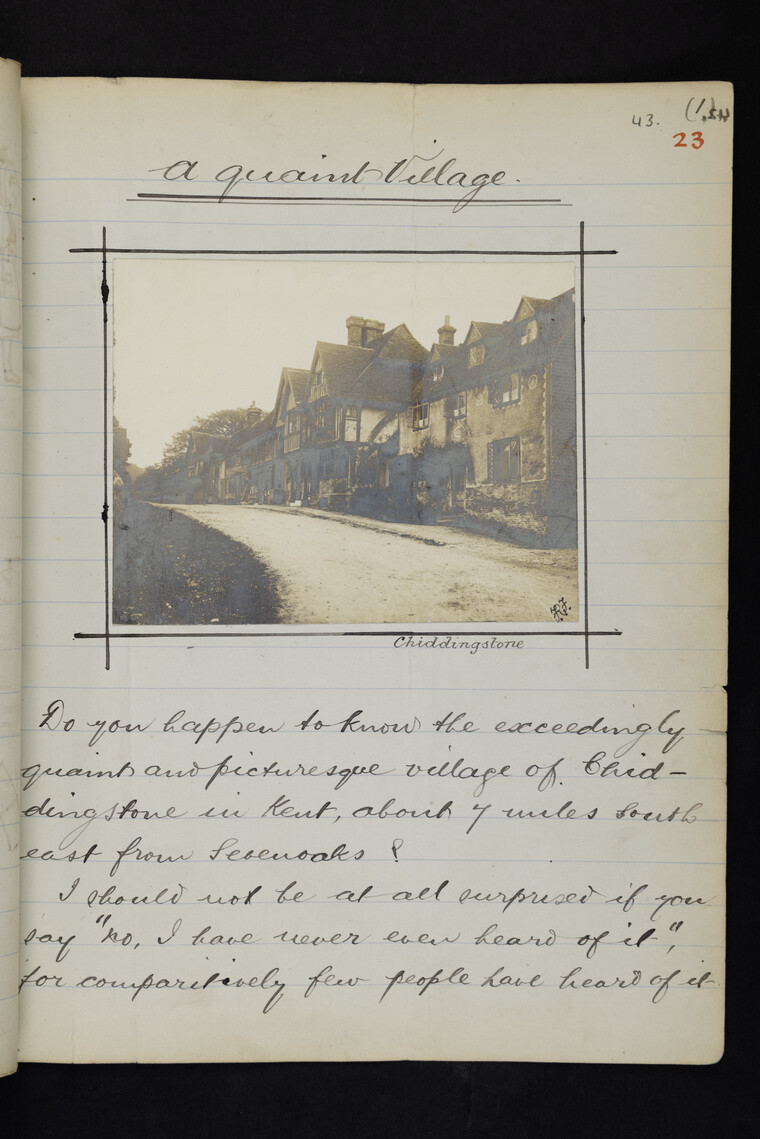 43.
23
A quaint Village.
Chiddingstone
Do you happen to know the exceedingly
quaint and picturesque village of Chid-
dingstone in Kent, about 7 miles south
east from Sevenoaks?
I should not be at all surprised if you
say "no, I have never even heard of it",
for comparitively few people have heard of it